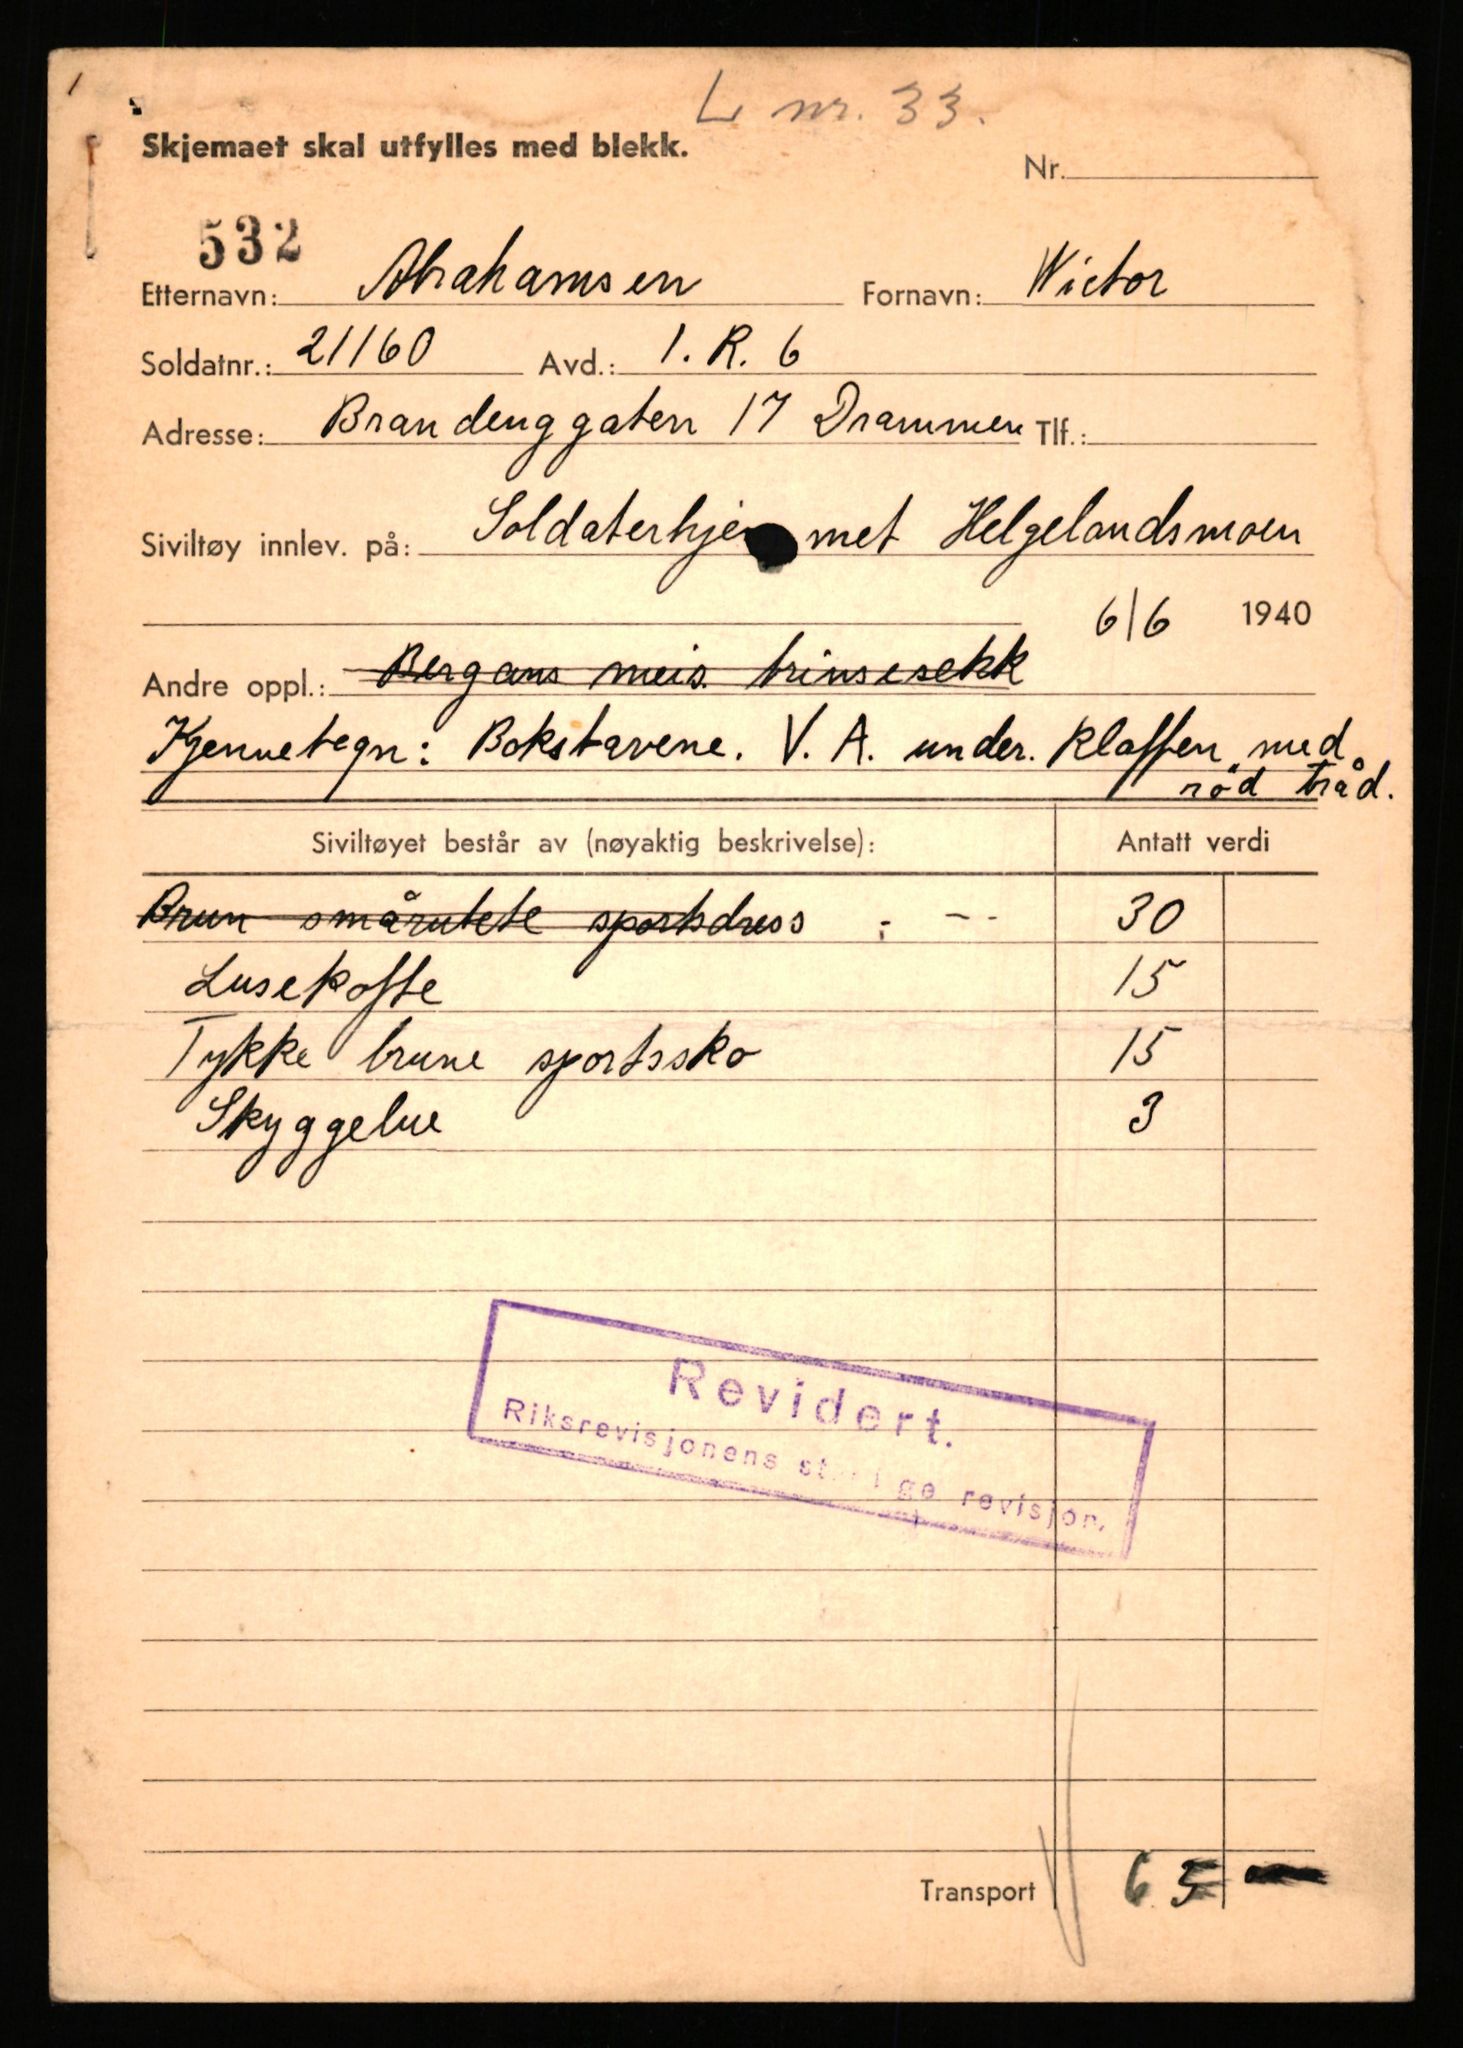 L nr. 33.
Skjemaet skal utfylles med blekk.
Nr.
532
Etternavn: Abrahamsen Fornavn: Wictor
Soldatnr.: 21160 Avd.: I. R. 6
Adresse: Brandenggaten 17 Drammen Tlf.:
Siviltøy innlev. på: Soldaterhjemmet Helgelandsmoen
6/6 1940
Andre oppl.: Bergans meis. brinsesekk
Kjennetegn: Bokstavene. V. A. under. klaffen med
rød tråd.
Siviltøyet består av (nøyaktig beskrivelse): Antatt verdi
Brun smårutete sportsdress . - -- 30
Lusekofte 15
Tykke brune sportssko 15
Skyggelue 3
Revidert.
Riksrevisjonens revisjon.
Transport 65 —